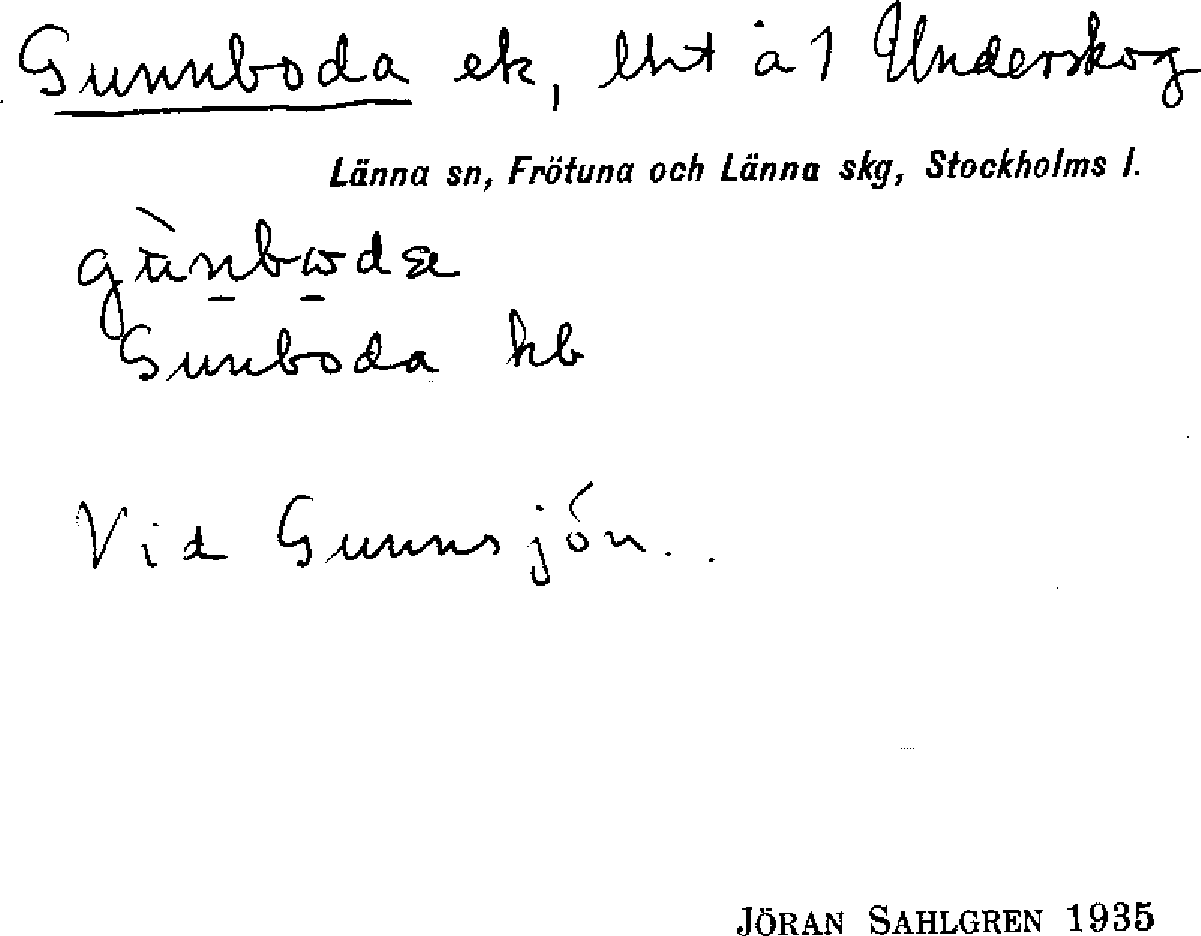 Gunnboda ek, lht å 1 Underskog
Länna sn, Frötuna och Länna skg, Stockholms l.
Gunboda kb
Vid Gunnsjön..
JÖRAN SAHLGREN 1935